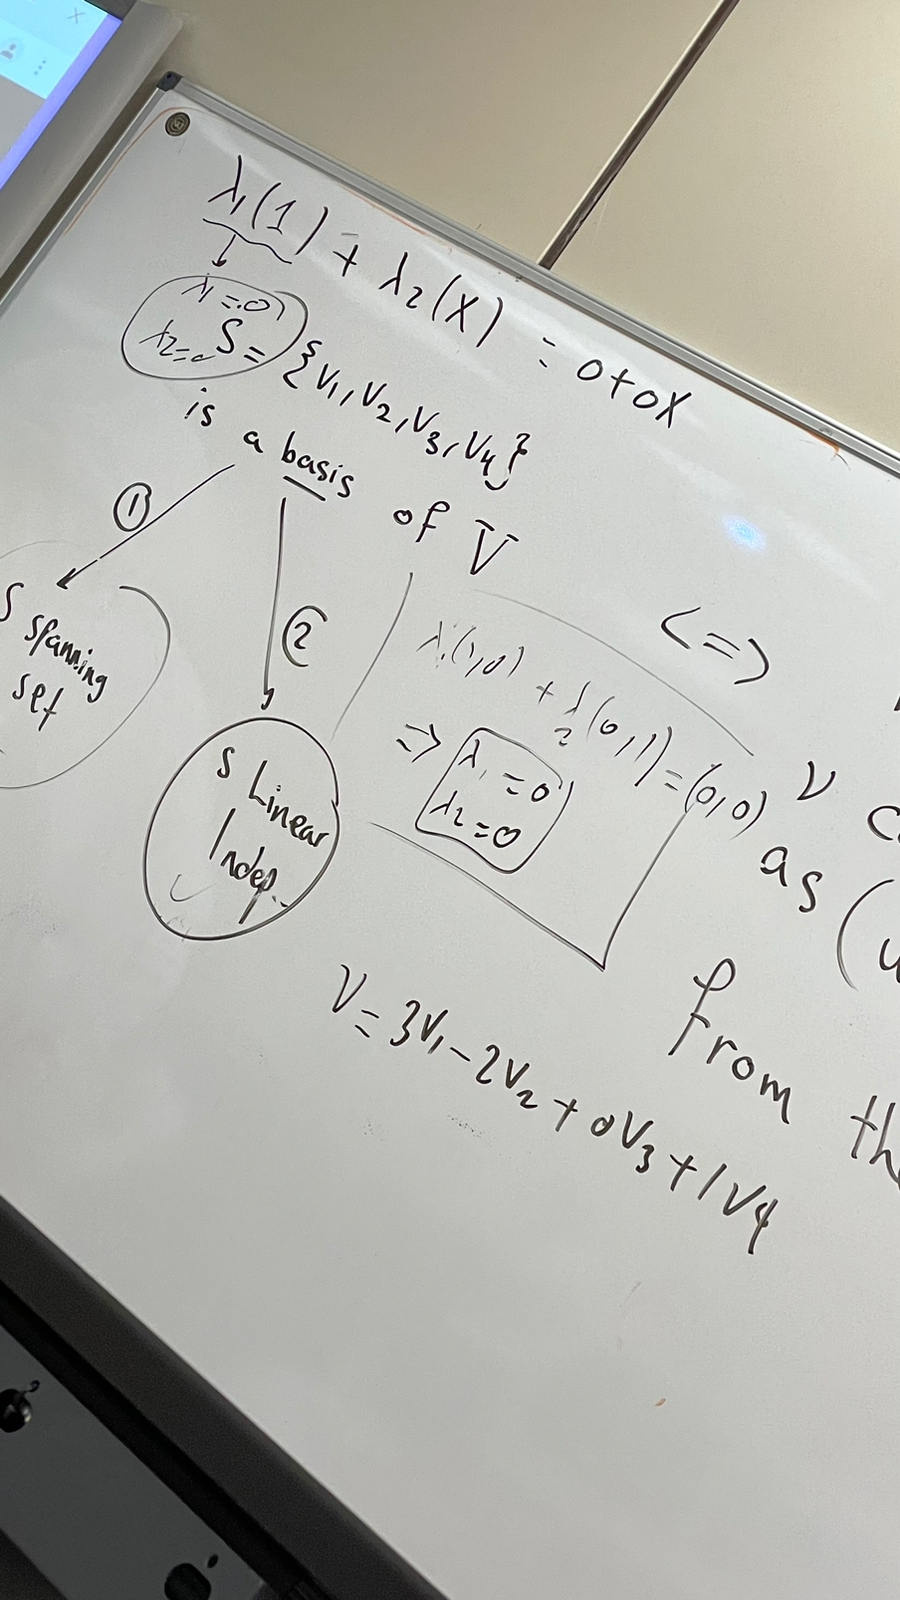 λ₁(1) + λ₂(X) = 0+0X
λ₁=0
λ₂=0
S = {V₁, V₂, V₃, V₄}
is a basis of V
①
②
S spanning
set
S Linear
Indep.
λ₁(1,0) + λ₂(0,1) = (0,0)
⇒ λ₁=0
λ₂=0
<=>
V
as (
from the
V = 3V₁ - 2V₂ + 0V₃ + 1V₄